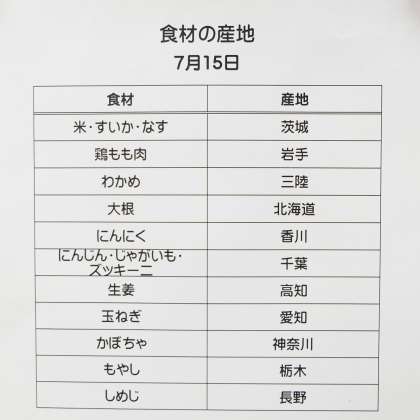 食材の産地
7月15日
食材 産地
米・すいか・なす 茨城
鶏もも肉 岩手
わかめ 三陸
大根 北海道
にんにく 香川
にんじん・じゃがいも・
ズッキーニ 千葉
生姜 高知
玉ねぎ 愛知
かぼちゃ 神奈川
もやし 栃木
しめじ 長野